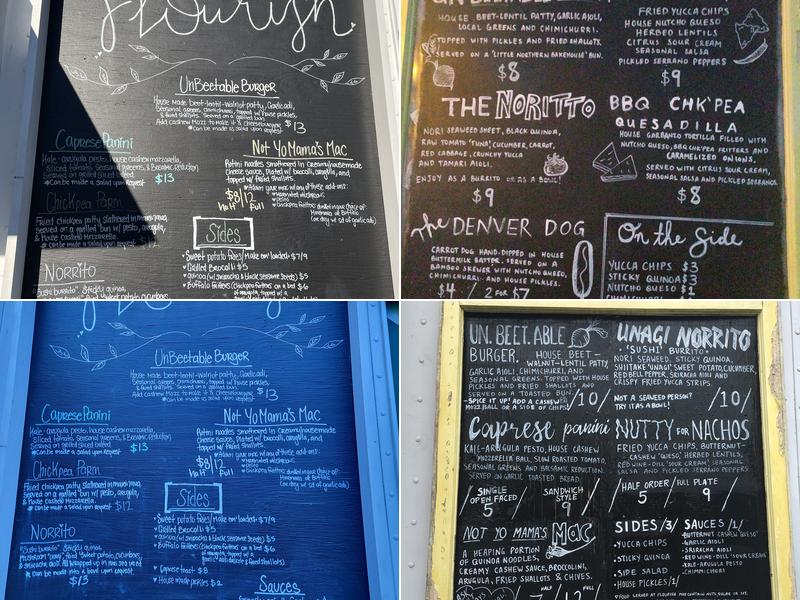 Flourish
UnBeetable Burger
House made beet-lentil-walnut patty, Garlic aioli,
Seasonal greens, chimichurri, topped w/ house pickles
& fried shallots. Served on a grilled bun.
Add cashew Mozz to make it a cheeseburger
*Can be made a salad upon request $13
Caprese Panini
Kale-arugula pesto, house cashew mozzarella,
Sliced tomato, Seasonal greens, & Balsamic Reduction
Served on grilled sliced
*Can be made a salad upon request $13
Chickpea Parm
Fried chickpea patty Slathered in
Served on a grilled bun w/ pesto, arugula,
& House Cashew Mozzarella.
*Can be made a salad upon request
Norrito
"Sushi burrito". Sticky quinoa,
Not Yo Mama's Mac
Rotini noodles smothered in Creamy housemade
cheese sauce, Plated w/ broccoli, arugula, and
topped w/ fried shallots.
$8/12
Half Full
Sides
Sweet potato fries/ Make em' loaded: $7/9
Grilled Broccoli $5
quinoa (w/ sriracha & black sesame Seeds) $5
Buffalo fritters (Chickpea fritters on a bed $6
HOUSE BEET-LENTIL PATTY, GARLIC AIOLI,
LOCAL GREENS AND CHIMICHURRI.
TOPPED WITH PICKLES AND FRIED SHALLOTS.
SERVED ON A "LITTLE NORTHERN BAKEHOUSE" BUN.
$8
FRIED YUCCA CHIPS
HOUSE NUTCHO QUESO
HERBED LENTILS
CITRUS SOUR CREAM
SEASONAL SALSA
PICKLED SERRANO PEPPERS
$9
THE NORITTO
NORI SEAWEED SHEET, BLACK QUINOA,
RAW TOMATO 'TUNA', CUCUMBER, CARROT,
RED CABBAGE, CRUNCHY YUCCA
AND TAMARI AIOLI.
ENJOY AS A BURRITO OR AS A BOWL!
$9
BBQ CHK'PEA
QUESADILLA
HOUSE GARBANZO TORTILLA FILLED WITH
NUTCHO QUESO, BBQ CHK'PEA FRITTERS AND
CARAMELIZED ONIONS.
SERVED WITH CITRUS SOUR CREAM,
SEASONAL SALSA AND PICKLED SERRANOS.
$8
The DENVER DOG
CARROT DOG HAND-DIPPED IN HOUSE
BUTTERMILK BATTER. SERVED ON A
BAMBOO SKEWER WITH NUTCHO QUESO,
CHIMICHURRI AND HOUSE PICKLES.
$4 / 2 FOR $7
On the Side
YUCCA CHIPS $3
STICKY QUINOA $3
NUTCHO QUESO $1
UnBeetable Burger
House made beet-lentil-walnut patty, Garlic aioli,
Seasonal greens, chimichurri, topped w/ house pickles
& fried shallots. Served on a grilled bun.
Add cashew Mozz to make it a cheeseburger
*Can be made a salad upon request $13
Caprese Panini
Kale-arugula pesto, house cashew mozzarella,
Sliced tomato, Seasonal greens, & Balsamic Reduction
Served on grilled sliced
*Can be made a salad upon request $13
Chickpea Parm
Fried chickpea patty Slathered in
Served on a grilled bun w/ pesto, arugula,
& House Cashew Mozzarella.
*Can be made a salad upon request $12
Norrito
"Sushi burrito". Sticky quinoa,
Sweet potato, cucumber,
sriracha aioli. All wrapped up in
*Can be made into a bowl upon request.
$13
Not Yo Mama's Mac
Rotini noodles smothered in Creamy housemade
cheese sauce, Plated w/ broccoli, arugula, and
topped w/ fried shallots.
$8/12
Half Full
Sides
Sweet potato fries/ Make em' loaded: $7/9
Grilled Broccoli $5
quinoa (w/ sriracha & black sesame Seeds) $5
Buffalo fritters (Chickpea fritters on a bed $6
Caprese toast $8
House made pickles $2
Sauces
UN. BEET. ABLE
BURGER, HOUSE BEET-
WALNUT-LENTIL PATTY,
GARLIC AIOLI, CHIMICHURRI, AND
SEASONAL GREENS. TOPPED WITH HOUSE
PICKLES AND FRIED SHALLOTS AND
SERVED ON A TOASTED BUN.
-SPICE IT UP! ADD A CASHEW
MOZZ BALL OR A SIDE OF CHIPS! /10/
UNAGI NORRITO
"SUSHI" BURRITO
NORI SEAWEED, STICKY QUINOA,
SHIITAKE 'UNAGI', SWEET POTATO, CUCUMBER,
RED BELL PEPPER, SRIRACHA AIOLI AND
CRISPY FRIED YUCCA STRIPS.
NOT A SEAWEED PERSON?
TRY IT AS A BOWL! /10/
Caprese panini
KALE-ARUGULA PESTO, HOUSE CASHEW
MOZZERELLA BALL, SLOW ROASTED TOMATO,
SEASONAL GREENS AND BALSAMIC REDUCTION.
SERVED ON GARLIC TOASTED BREAD.
SINGLE OPEN FACED 5 / SANDWICH STYLE 9
NUTTY FOR NACHOS
FRIED YUCCA CHIPS, BUTTERNUT-
CASHEW 'QUESO', HERBED LENTILS,
RED WINE-DILL 'SOUR CREAM', SEASONAL
SALSA AND PICKLED SERRANO PEPPERS
HALF ORDER 5 / FULL PLATE 9
NOT YO MAMA'S MAC
A HEAPING PORTION
OF QUINOA NOODLES,
CREAMY CASHEW SAUCE, BROCCOLINI,
ARUGULA, FRIED SHALLOTS & CHIVES.
HALF 7 / FULL 12
SIDES /3/
YUCCA CHIPS
STICKY QUINOA
SIDE SALAD
HOUSE PICKLES /1/
SAUCES /1/
BUTTERNUT CASHEW 'QUESO'
GARLIC AIOLI
SRIRACHA AIOLI
RED WINE-DILL 'SOUR CREAM'
KALE-ARUGULA PESTO
CHIMICHURRI